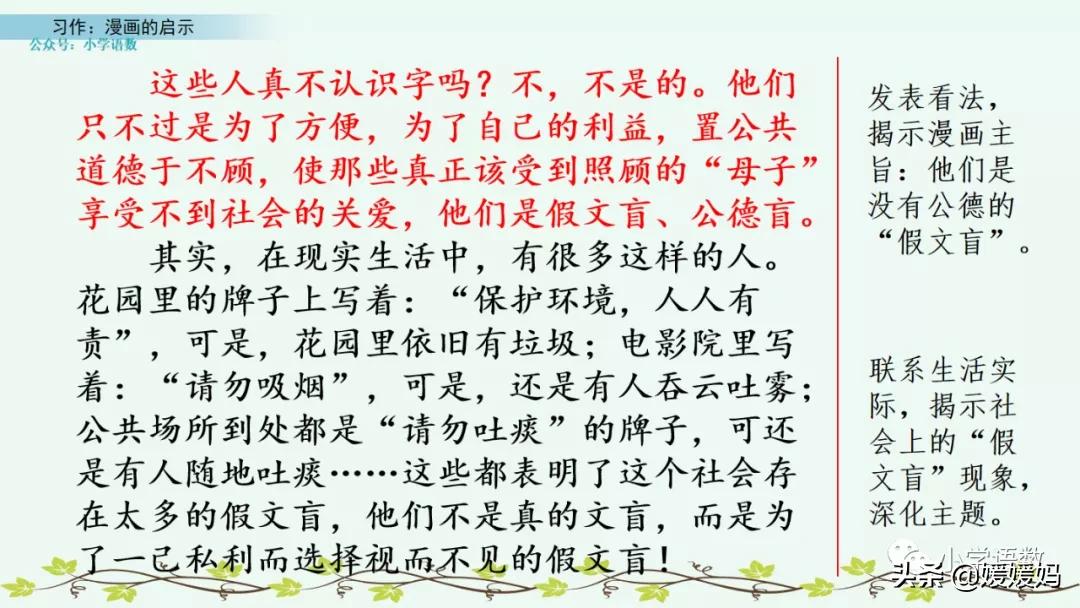 习作：漫画的启示
公众号：小学语数
这些人真不认识字吗？不，不是的。他们
只不过是为了方便，为了自己的利益，置公共
道德于不顾，使那些真正该受到照顾的“母子”
享受不到社会的关爱，他们是假文盲、公德盲。
其实，在现实生活中，有很多这样的人。
花园里的牌子上写着：“保护环境，人人有
责”，可是，花园里依旧有垃圾；电影院里写
着：“请勿吸烟”，可是，还是有人吞云吐雾；
公共场所到处都是“请勿吐痰”的牌子，可还
是有人随地吐痰……这些都表明了这个社会存
在太多的假文盲，他们不是真的文盲，而是为
了一己私利而选择视而不见的假文盲！
发表看法，
揭示漫画主
旨：他们是
没有公德的
“假文盲”。
联系生活实
际，揭示社
会上的“假
文盲”现象，
深化主题。
小学语数
头条 @媛媛妈